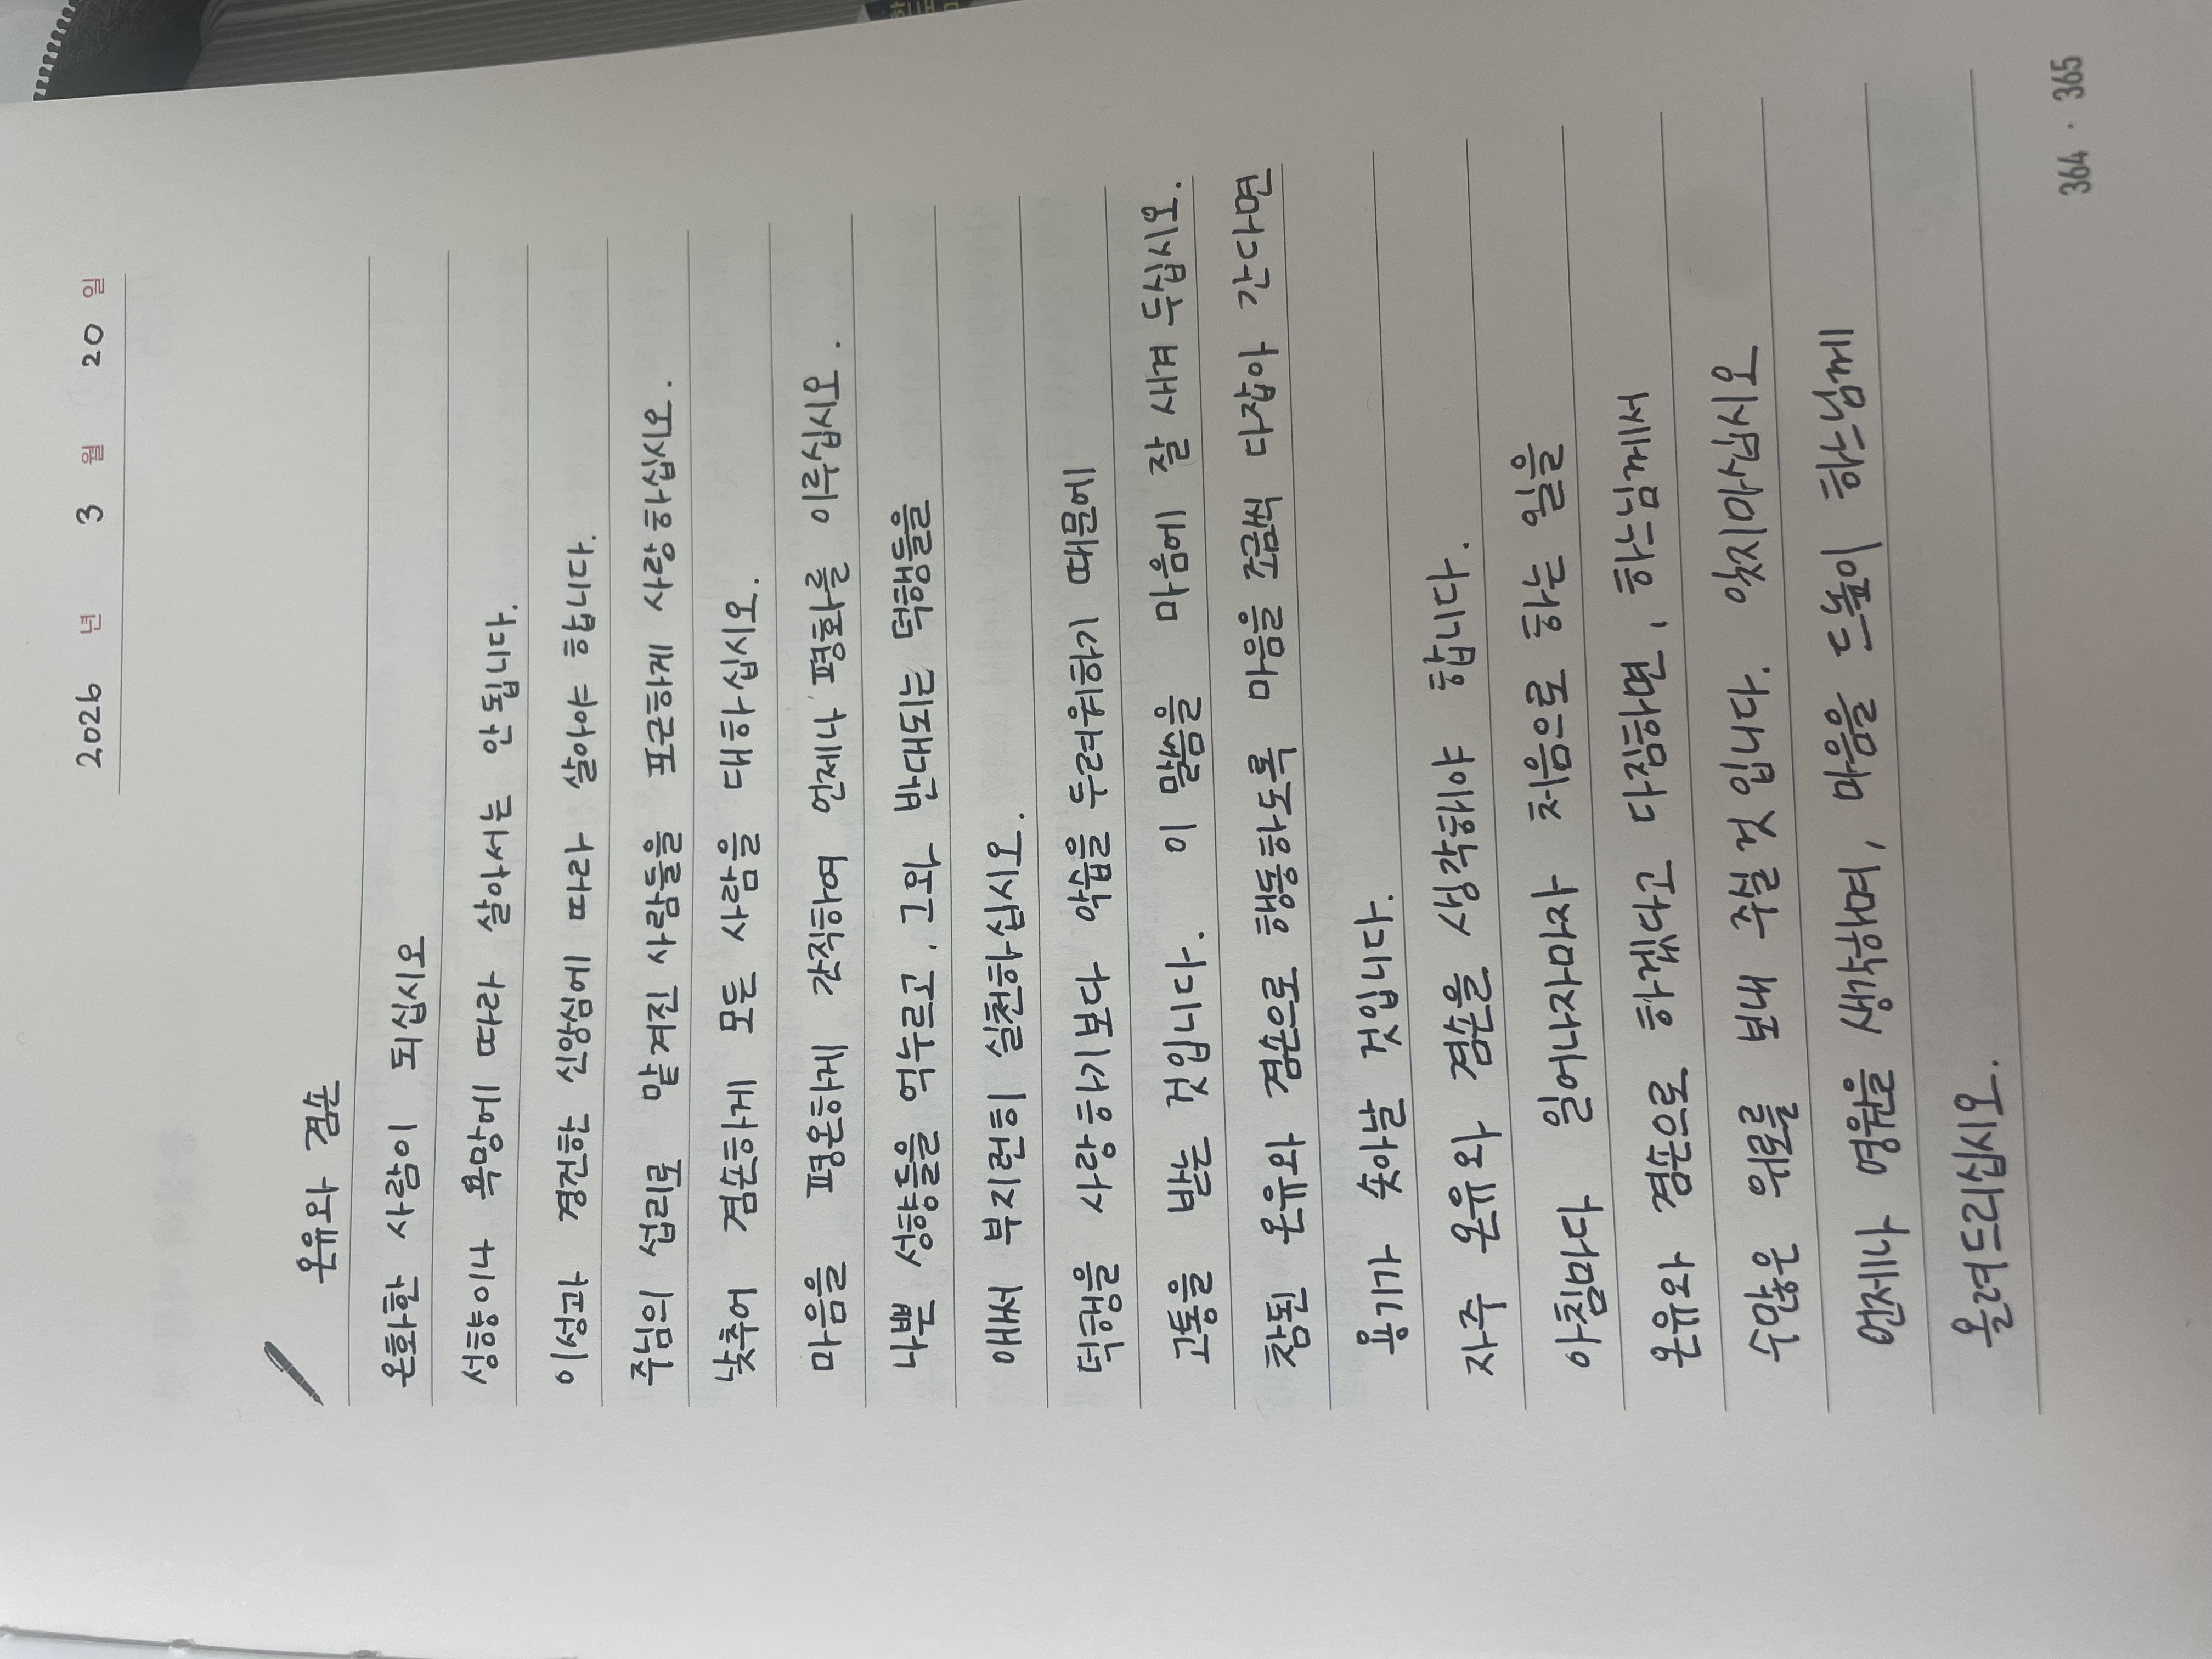 2026 년 3 월 20 일
온유와 겸손
온화한 사람이 되십시오
성향이나 욕망에 따라 살아서는 안 됩니다.
이성과 경건한 신앙심에 따라 살아야 합니다.
주님의 섭리로 맡겨진 사람들을 포근하게 사랑하십시오.
낮추어 겸손하게 모든 사람을 대하십시오.
마음을 평온하게 간직하여 언제나 평화를 이루십시오.
나쁜 성향들을 억누르고, 그와 반대되는 덕행들을
애써 부지런히 실천하십시오.
덕행을 사랑하기보다 악습을 두려워하기 때문에
고통을 받는 것입니다. 이 말씀을 마음에 잘 새겨 두십시오.
참된 온유와 겸손으로 행동하도록 마음을 조금씩 다잡아 간다면
용기가 솟아날 것입니다.
자주 온유와 겸손을 생각해야 합니다.
아침마다 일어나자마자 처음으로 하는 일을
온유와 겸손으로 하겠다고 다짐하면, 하느님께서
수많은 위로를 보내 주실 것입니다. 잊지마십시오
언제나 영원을 생각하며, 마음을 드높이 하느님께
올려드리십시오.
364 · 365